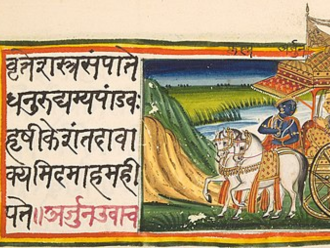 कृष्ण अर्जुन
वृत्तेशस्त्रसंपाते
धनुरुद्यम्यपांडवः
हृषीकेशंतदावा
क्यमिदमाहमही
पते॥अर्जुनउवाच